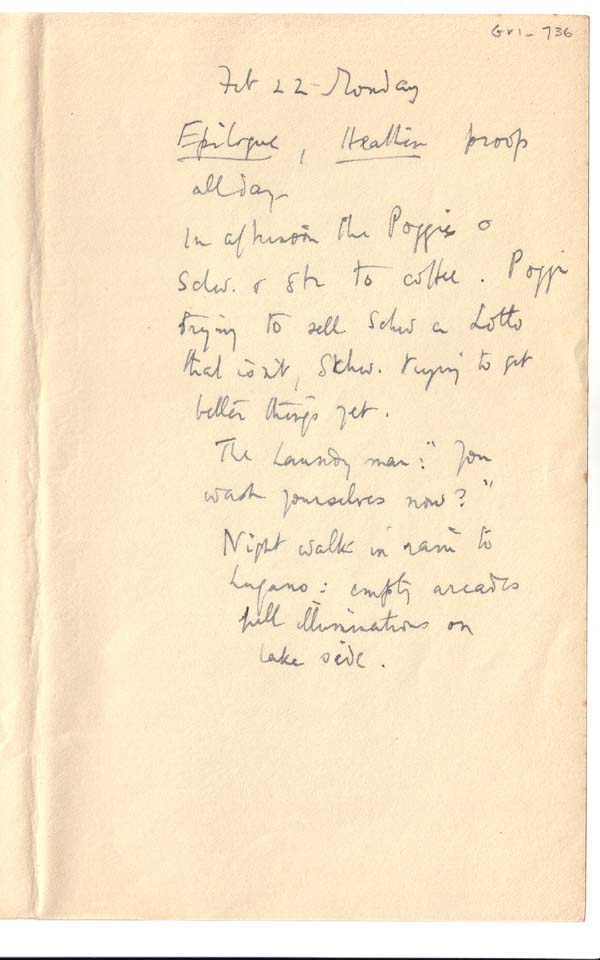 GRI- 736
Feb 22 - Monday
Epilogue, Heathen proofs
all day
In afternoon the Poggis &
Schw. & Str to coffee. Poggi
trying to sell Schw a Lotto
that isn't, Schw. trying to get
better things yet.
The Laundry man: "You
wash yourselves now?"
Night walk in rain to
Lugano: empty arcades
full illuminations on
lake side.